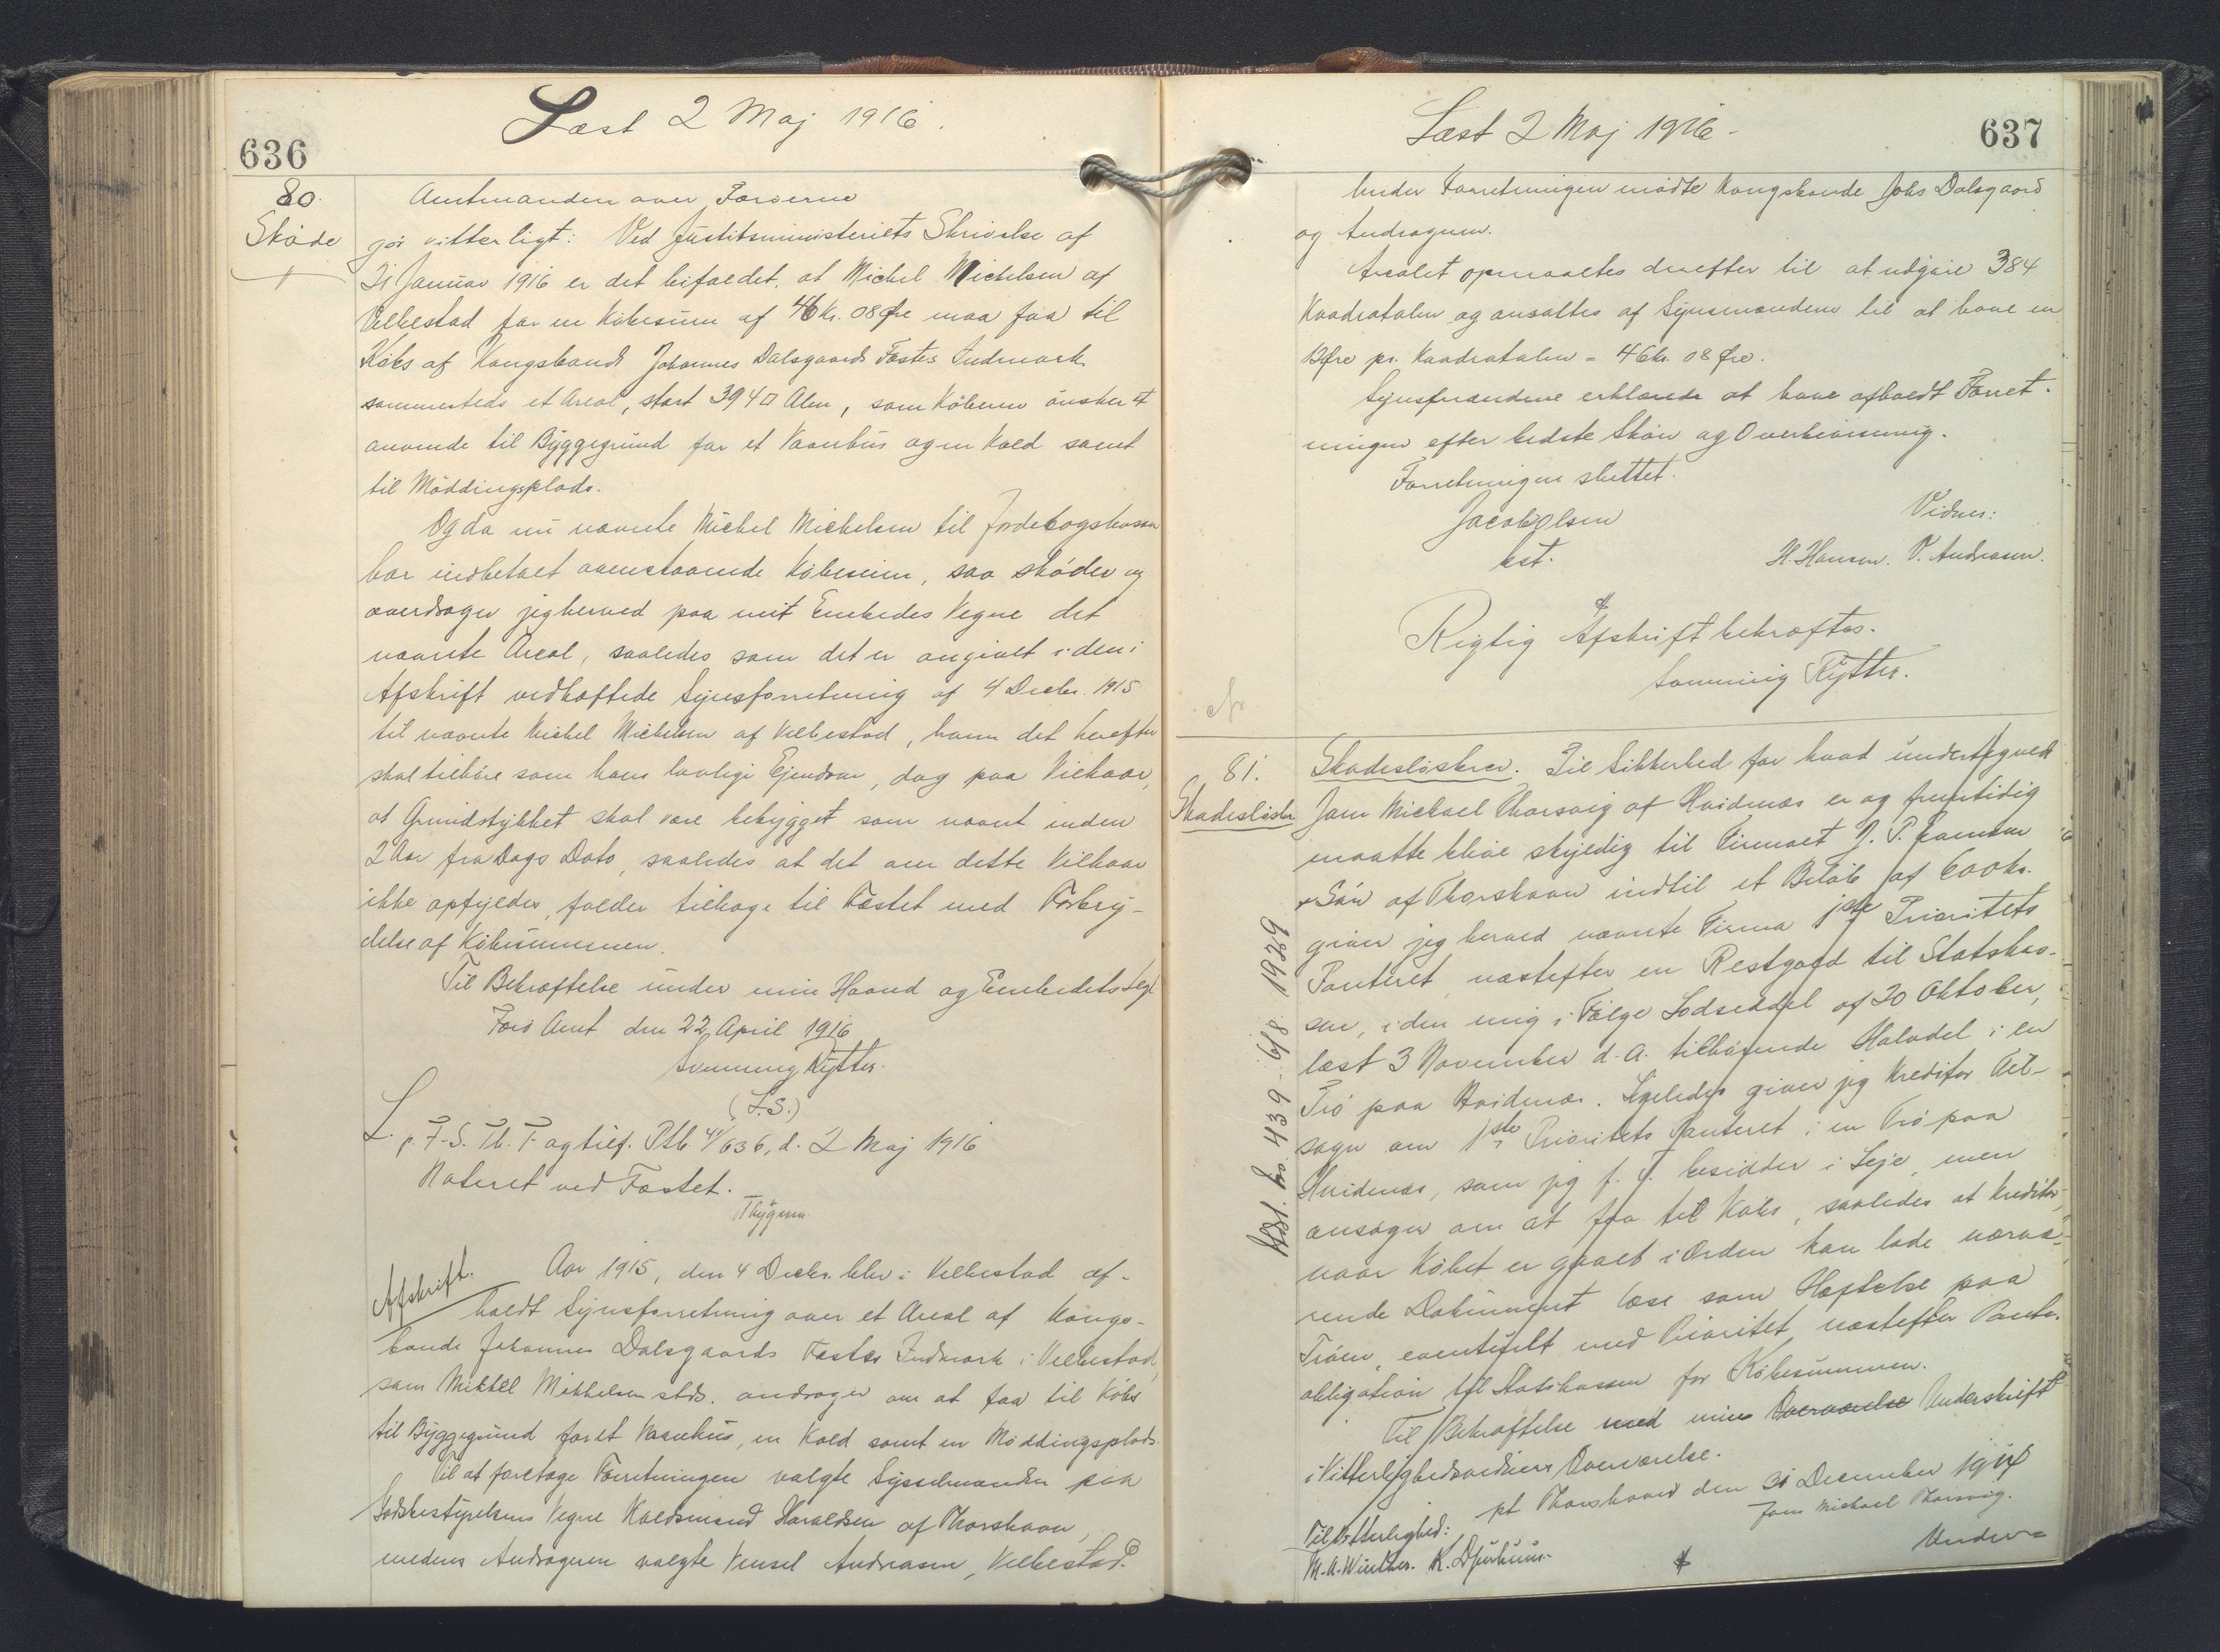 636
Læst 2 Maj 1916.
80.
Skøde
Amtmanden over Færøerne
gör vitterligt: Ved Justitsministeriets Skrivelse af
31 Januar 1916 er det bifaldet, at Michel Michelsen af
Velbestad for en Köbesum af 46 Kr. 08 Øre maa faa til
Köbs af Kongsbonde Johannes Dalsgaards Fæstes Indmark
sammesteds et Areal, stort 394 □ Alen, som Köberen önsker at
anvende til Byggegrund for et Vaanhus og en Kold samt
til Möddingsplads.
Og da nu nævnte Michel Michelsen til Jordebogskassen
har indbetalt ovenstaaende Köbesum, saa sköder og
overdrager jeg herved paa mit Embedes Vegne det
nævnte Areal, saaledes som det er angivet i den i
Afskrift vedhæftede Synsforretning af 4 Decbr. 1915
til nævnte Michel Michelsen af Velbestad, ham det herefter
skal tilhöre som hans lovlige Ejendom, dog paa Vilkaar,
at Grundstykket skal være bebygget som nævnt inden
2 Aar fra Dags Dato, saaledes at det om dette Vilkaar
ikke opfyldes, falder tilbage til Fæstet med Forbry-
delse af Köbesummen.
Til Bekræftelse under min Haand og Embedets Segl
Færö Amt den 22 April 1916
Svenning Rytter.
(L.S.)
L. p. F.-S. Th. T. og tilf. Ptb. 4/636, d. 2 Maj 1916
Noteret ved Fæstet.
Thygesen
Afskrift. Aar 1915, den 4 Decbr. blev i Velbestad af-
holdt Synsforretning over et Areal af Kongs-
bonde Johannes Dalsgaards Fæstes Indmark i Velbestad,
som Mikkel Mikkelsen stds. andrager om at faa til Köbs
til Byggegrund for et Vaanhus, en Kold samt en Möddingsplads.
Til at foretage Forretningen valgte Sysselmanden paa
Godsbestyrelsens Vegne Koldsmand Haraldsen af Thorshavn,
medens Andrageren valgte Vensel Andreasen, Velbestad.
637
Læst 2 Maj 1916-
Under Forretningen mödte Kongsbonde Johs Dalsgaard
og Andrageren.
Arealet opmaaltes derefter til at udgöre 384
Kvadratalen og ansattes af Synsmændene til at have en
12 Øre pr. Kvadratalen = 46 kr. 08 Øre.
Synsmændene erklærede at have afholdt Forret-
ningen efter bedste Skön og Overbevisning.
Forretningen sluttet.
Jacob Olsen
kst.
Vidner:
H. Hansen. P. Andreasen.
Rigtig Afskrift bekræftes.
Svenning Rytter.
81.
Skadesløsbr
Skadeslösbrev. Til Sikkerhed for hvad undertegnede
Jans Michael Thorsvig af Hvidenæs er og fremtidig
maatte blive skyldig til Firmaet J. P. Joensen
& Sön af Thorshavn indtil et Belöb af 600 kr.
giver jeg herved nævnte Firma 1ste Prioritets
Panteret, næstefter en Restgæld til Statskas-
sen, i den mig i Fölge Lodseddel af 20 Oktober,
læst 3 November d. A. tilhörende Halvdel i en
Trö paa Hvidenæs. Ligeledes giver jeg Kreditor Til-
sagn om 1ste Prioritets Panteret i en Trö paa
Hvidenæs, som jeg f. T. besidder i Leje, men
ansöger om at faa til Köbs, saaledes at Kreditor,
naar Köbet er gaaet i Orden kan lade nærvæ-
rende Dokument læse som Hæftelse paa
Tröen, eventuelt med Prioritet næstefter Pante-
obligation til Statskassen for Köbesummen.
Til Bekræftelse med min Overværelse Underskrift
i Vitterlighedsvidners Overværelse.
pt Thorshavn den 31 December 1914
Jans Michael Thorsvig.
Til Vitterlighed:
M. A. Winther. K. Djurhuus.
Under=
Udsl. Nr. 439 - 6/8 1929